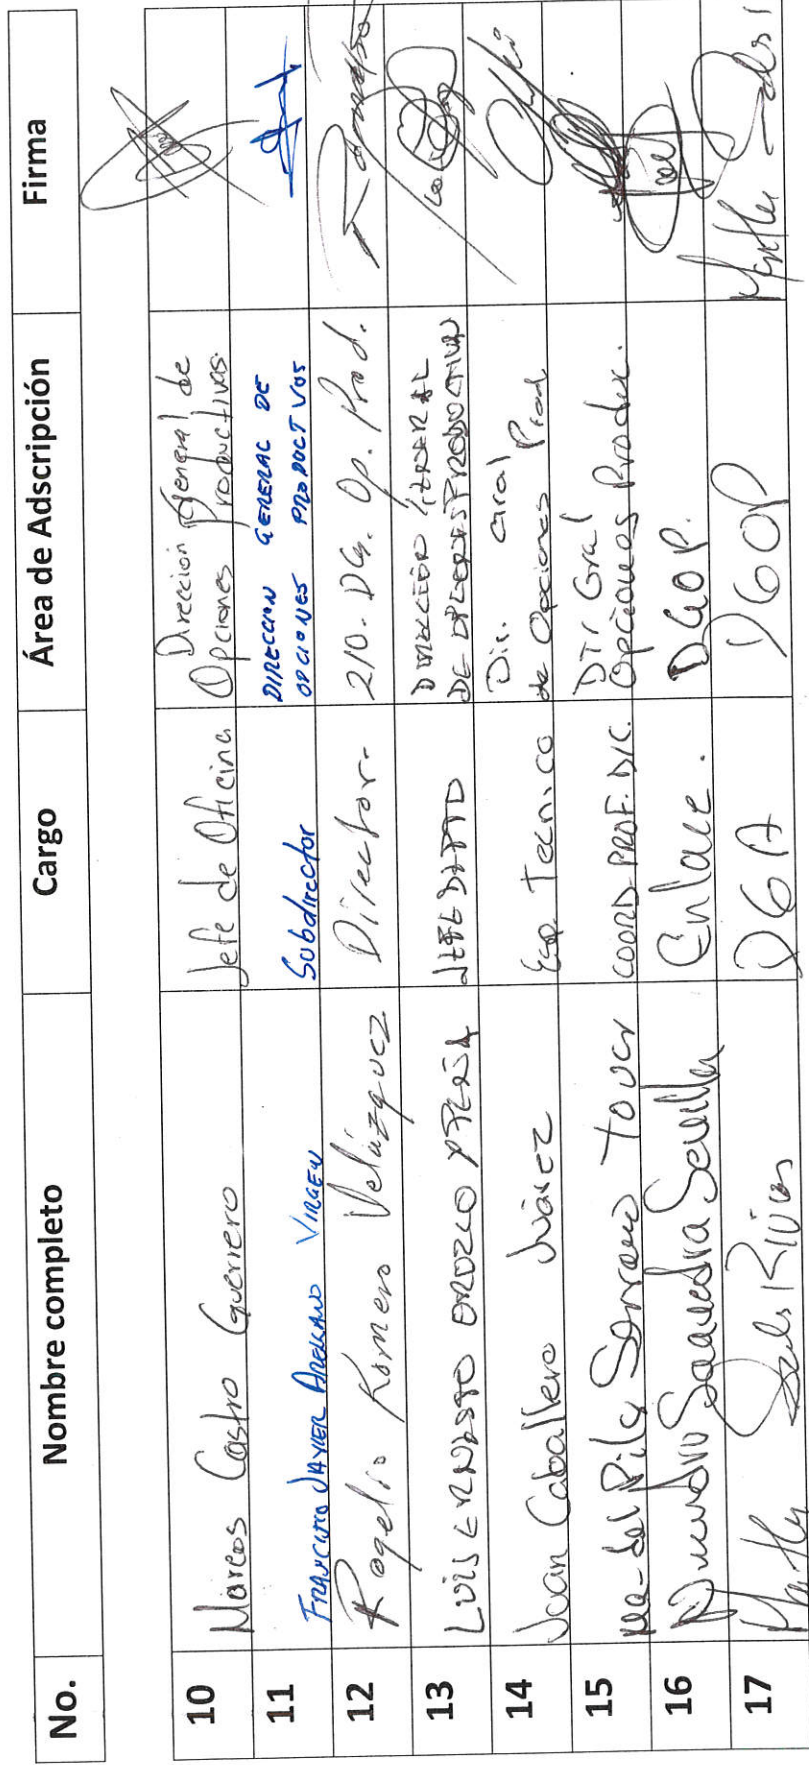 No. Nombre completo Cargo Área de Adscripción Firma
10 Marcos Castro Guerrero Jefe de Oficina Direccion General de
Opciones Productivas.
11 FRANCISCO JAVIER ARELLANO VIRGEN Subdirector DIRECCION GENERAL DE
OPCIONES PRODUCTIVOS
12 Rogelio Romero Velázquez Director. 210. DG. Op. Prod.
13 LUIS ERNESTO OROZCO DIRECCION GENERAL
DE OPCIONES PRODUCTIVAS
14 Juan Caballero Juárez Esp. Tecnico Dir. Gral
de Opciones Prod
15 Ma. del Pilar Serrano Tovar COORD. PROF. DIC. DTr Gral
Opciones Produc.
16 Saavedra Sevilla Enlace. DGOP.
17 Rivas DGA DGOP